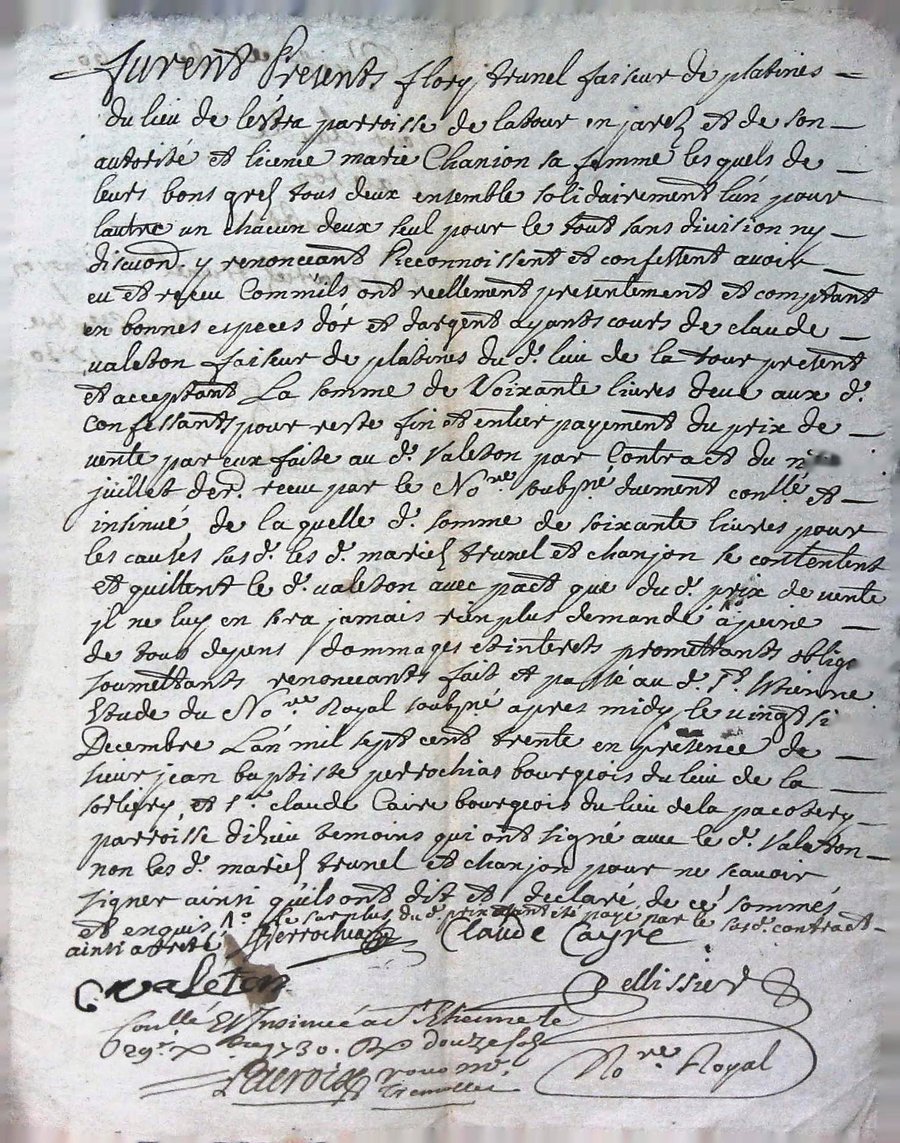 furent Presents flory trunel faiseur de platines
du lieu de lestra parroisse de latour en jarez et de son
autorité et licence marie Chanjon sa femme les quels de
leurs bons grez tous deux ensemble solidairement lun pour
lautre un chacun deux seul pour le tout sans division ny
discuõn y renoncant Reconnoissent et confessent avoir
eu et receu Commils ont reellement presentement et comptant
en bonnes especes dor et dargent ayants cours de claude
valeton faiseur de platines du d. lieu de la tour present
et acceptant La somme de Soixante livres deue aux d.
Confessants pour reste fin et entier payement du prix de
vente par eux faite au d. Valeton par Contract du
juillet der. receu par le No.re soubs.né duement conllé et
insinué de la quelle d. somme de soixante livres pour
les causes susd. les d. mariez trunel et chanjon se contentent
et quittent le d. valeton avec pact que du d. prix de vente
jl ne luy en sera jamais rien plus demandé a peine
de tous depens dommages et interets promettants oblige
soumettants renoncants fait et passé au d. St. Etienne
Etude du No.re Royal soubs.né apres midy le vingt si
Decembre Lan mil sept cent trente en presence de
sieur jean baptiste perrochias bourgeois du lieu de la
sorlery et s.r claude Caire bourgeois du lieu de la pacotery
parroisse dihieu temoins qui ont signé avec le d. Valeton
non les d. mariez trunel et chanjon pour ne scavoir
signer ainsi quils ont dit et declaré de ce sommés
et enquis 1.o le surplus du d. prix etant eté payé par le susd. contract
ainsi arreté Perrochias Claude Cayre
C valeton Pellissier
Conllé Et Insinué a St Etienne le
29.e Xbre 1730. Rx douze sols
Lacroix
No.re Royal